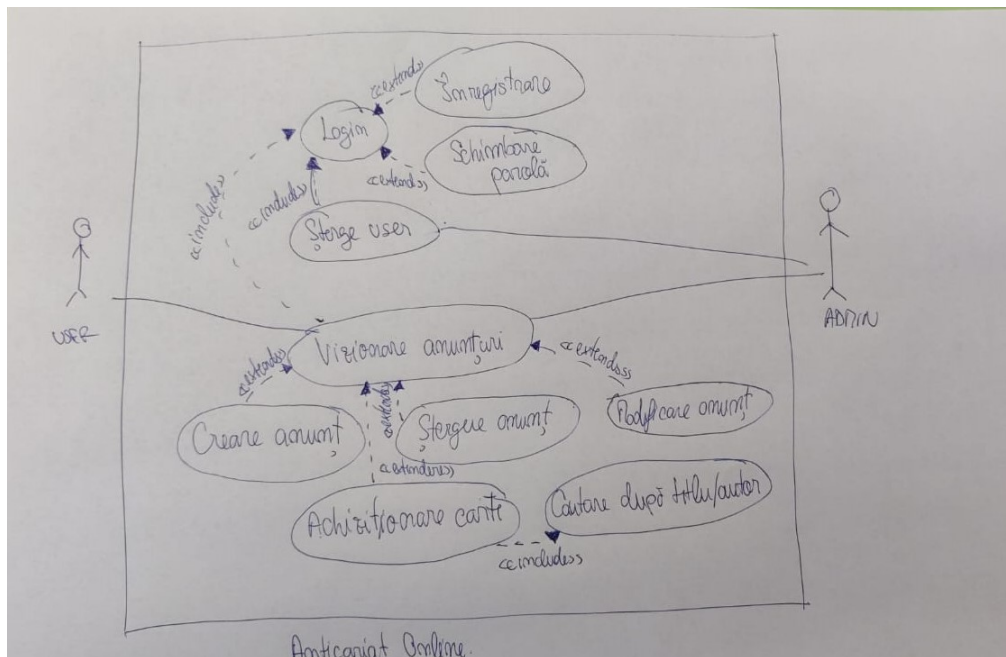 <<extends>>
Înregistrare
Login
Schimbare
parolă
<<extends>>
<<includes>>
<<includes>>
Șterge user
USER
ADMIN
Vizionare anunțuri
<<extends>>
<<extends>>
<<extends>>
Creare anunț
Ștergere anunț
Modificare anunț
<<extinderes>>
Achiziționare carte
Căutare după titlu/autor
<<includes>>
Anticariat Online.